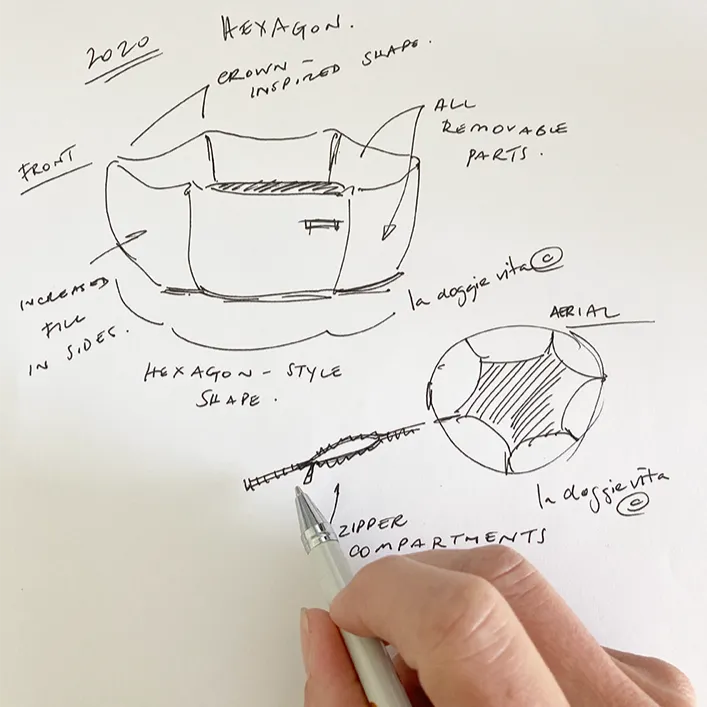 2020
HEXAGON.
CROWN-
INSPIRED SHAPE.
FRONT
ALL
REMOVABLE
PARTS.
INCREASED
FILL
IN SIDES.
la doggie vita ©
HEXAGON-STYLE
SHAPE.
AERIAL
la doggie vita
©
ZIPPER
COMPARTMENTS